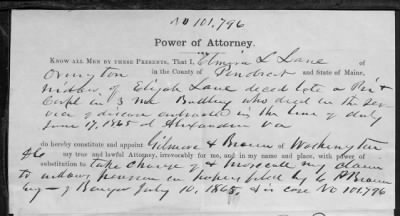 No 101,796
Power of Attorney.
Know all Men by these Presents, That I, Elmira L Lane of
Orrington in the County of Penobscot and State of Maine,
widow of Elijah Lane decd late a Priv &
Corpl in 3 Me Battery who died in the Ser
vice of disease contracted in the line of duty
June 17, 1865 at Alexandria Va
do hereby constitute and appoint Gilmore & Brown of Washington
my true and lawful Attorney, irrevocably for me, and in my name and place, with power of
substitution to take charge of & prosecute my claim
to widows pension in papers filed by C P Brown
Esq of Bangor July 10, 1865, & in case No 101,796